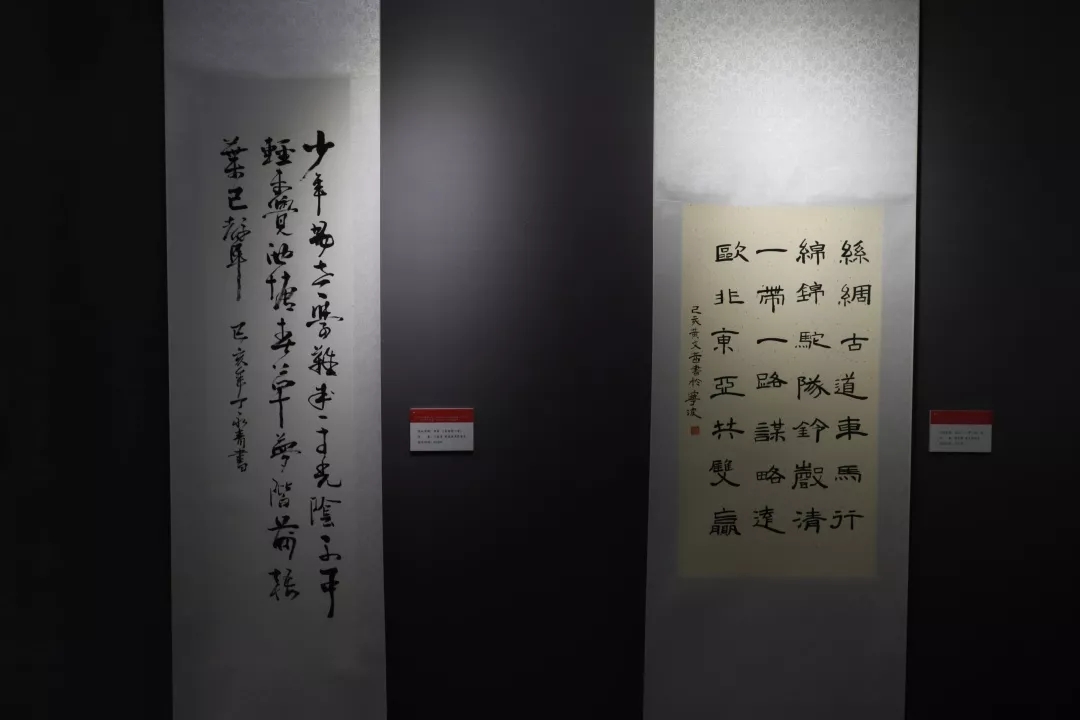 少年易老學難成一寸光陰不可
輕未覺池塘春草夢階前梧
葉已秋聲 己亥年丁永青書
絲綢古道車馬行
綿錦駝隊鈴聲清
一帶一路謀略遠
歐非東亞共雙贏
己亥黃文書於寧波